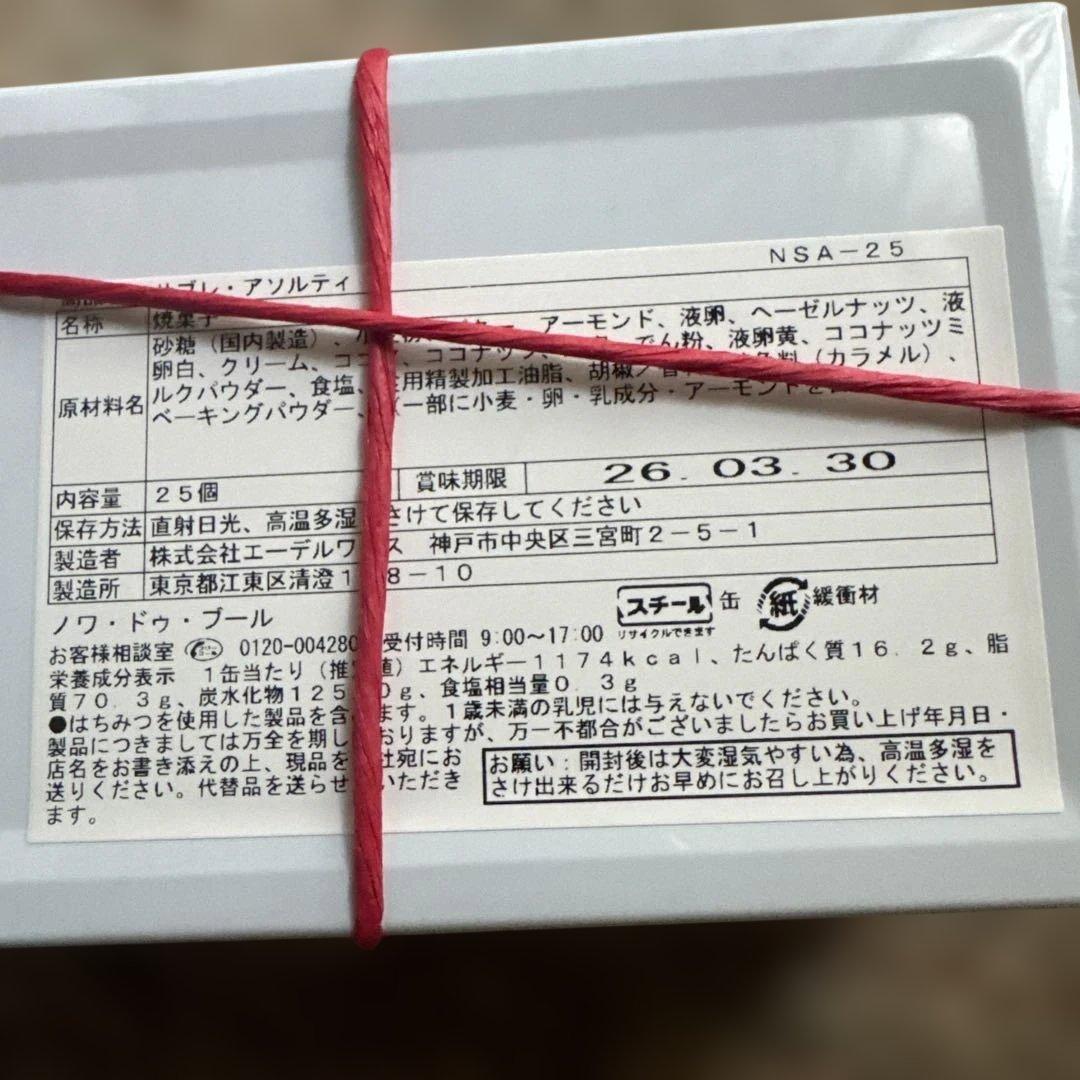 NSA-25
サブレ・アソルティ
名称 焼菓子
原材料名 砂糖(国内製造)、 アーモンド、液卵、ヘーゼルナッツ、液
卵白、クリーム、 ココナッツ、 でん粉、液卵黄、ココナッツミ
ルクパウダー、食塩、食用精製加工油脂、胡椒/ (カラメル)、
ベーキングパウダー、(一部に小麦・卵・乳成分・アーモンドを
内容量 25個 賞味期限 26.03.30
保存方法 直射日光、高温多湿 さけて保存してください
製造者 株式会社エーデルワイス 神戸市中央区三宮町2-5-1
製造所 東京都江東区清澄1 8-10
ノワ・ドゥ・ブール スチール 缶 紙 緩衝材
リサイクルできます
お客様相談室 0120-004280 受付時間 9:00〜17:00
栄養成分表示 1缶当たり(推定値)エネルギー1174kcal、たんぱく質16.2g、脂
質70.3g、炭水化物125. 0g、食塩相当量0.3g
●はちみつを使用した製品を含みます。1歳未満の乳児には与えないでください。
製品につきましては万全を期しておりますが、万一不都合がございましたらお買い上げ年月日・
店名をお書き添えの上、現品を弊社宛にお
送りください。代替品を送らせていただき
ます。
お願い:開封後は大変湿気やすい為、高温多湿を
さけ出来るだけお早めにお召し上がりください。